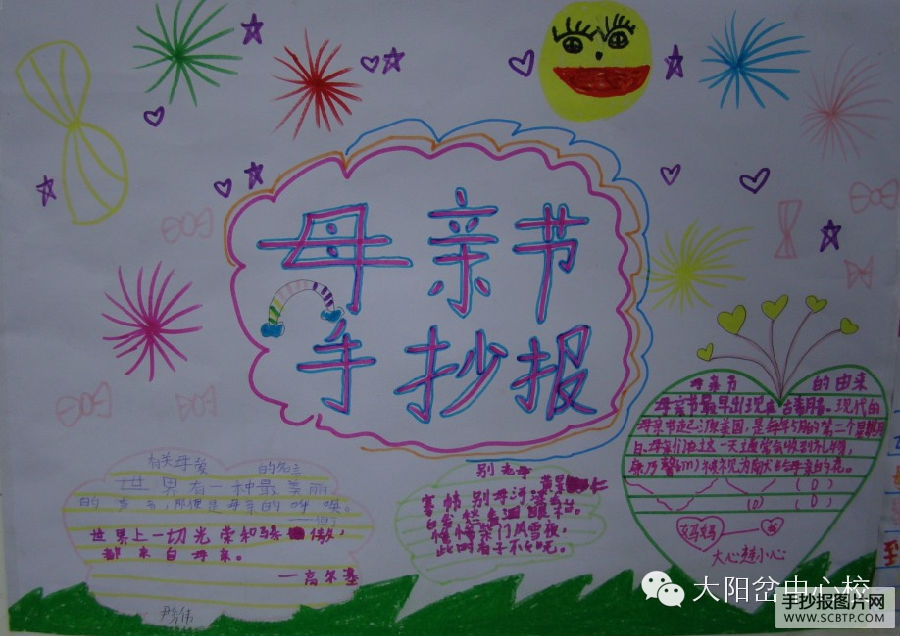 母亲节
手抄报
有关母爱 的名言
世界有一种最美丽
的声音,那便是母亲的呼唤。
世界上一切光荣和骄傲,
都来自母亲。
—高尔基
别老母
别母河梁
白发愁看泪眼枯。
惨惨柴门风雪夜,
此时有子不
母亲节 的由来
母亲节最早出现在古希腊。现代的
母亲节 美国,是每年5月的第二个星期
日。母亲们在这一天通常会收到礼物,
康乃馨 被视为 母亲的花。
妈妈
大心连小心
大阳岔中心校
手抄报图片网
WWW.SCBTP.COM